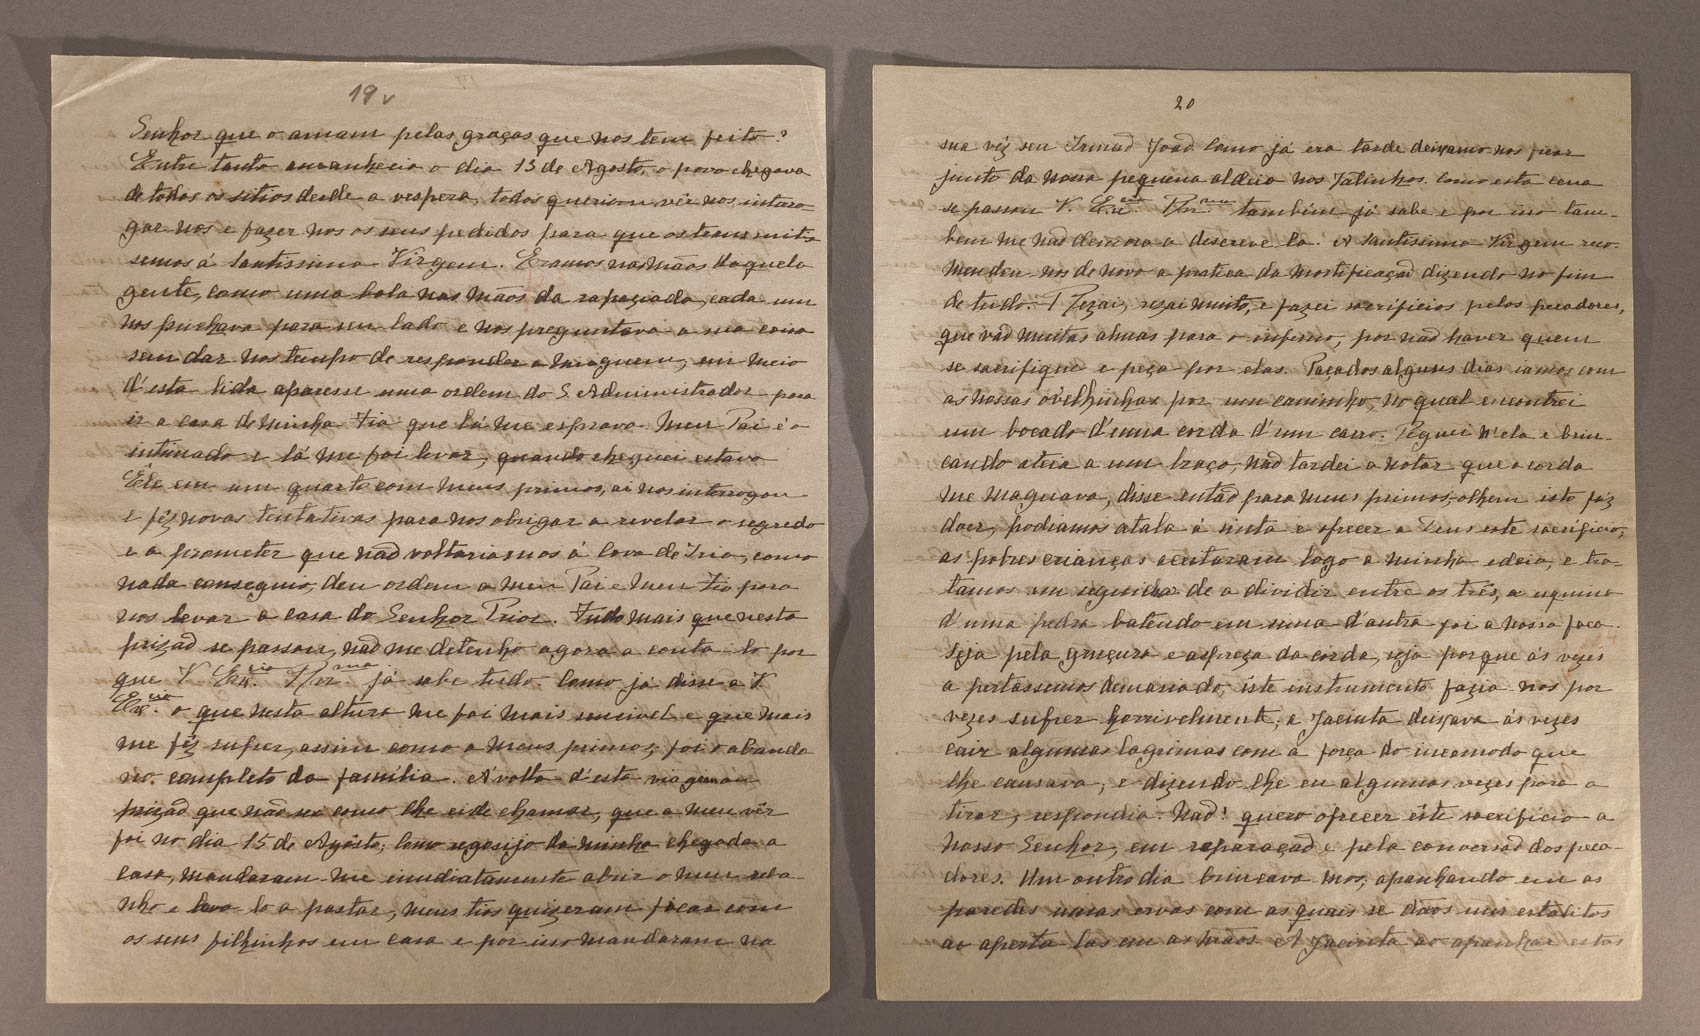 19 v
Senhor que o amam pelas graças que nos tem feito?
Entre tanto amanhecia o dia 13 de Agosto, o povo chegava
de todos os sitios desde a vespera, todos queriam vêr nos, intero-
gar-nos e fazer nos os seus pedidos para que os transmiti-
semos á Santissima Virgem. Eramos nas mãos daquela
gente, como uma bola nas mãos da rapaziada, cada um
nos puchava para seu lado e nos preguntava a sua coisa
sem dar nos tempo de responder a ninguem, em meio
d'esta lida aparesse uma ordem do S. Administrador para
ir a casa de minha Tia que lá me esprava. Meu Pai é o
intimado e lá me foi levar, quando cheguei estava
Êle em um quarto com meus primos, ai nos interrogou
e fêz novas tentativas para nos obrigar a revelar o segredo
e a prometer que não voltariamos á Cova de Iria, como
nada conseguio, deu ordem a meu Pai e meu tio para
nos levar a casa do Senhor Prior. Tudo mais que nesta
prizaõ se passou, naõ me detenho agora a conta-lo por
que V. Ex.cia Rv.ma já sabe tudo. Como já disse a V.
Ex.cia o que nesta altura me foi mais sencivel e que mais
me fêz sufrer, assim como a meus primos; foi o abando
no completo da família. Á volta d'esta viagem ou
prizaõ que naõ sei como lhe eide chamar, que a meu vêr
foi no dia 15 de Agôsto; como regosijo da minha chegada a
casa, mandaram-me imediatamente abrir o meu reba-
nho e leva lo a pastar, meus tios quizeram ficar com
os seus filhinhos em casa e por isso mandaram na
20
sua vêz seu Irmaõ Joaõ. Como já era tarde deixamo-nos ficar
junto da nossa pequena aldeia nos Valinhos. Como esta cena
se passou V. Ex.cia Rv.ma também já sabe e por isso tam-
bem me naõ demoro a discreve la. A Santissima Virgem reco-
mendou-nos de novo a pratica da mortificaçaõ dizendo no fim
de tudo: Rezai, rezai muito, e fazei sacrificios pelos pecadores,
que vaõ muitas almas para o inferno, por naõ haver quem
se sacrifique e peça por elas. Paçados alguns dias iamos com
as nossas ovêlhinhas por um caminho, no qual encontrei
um bocado d'uma corda d'um carro. Peguei n'ela e brin-
cando ateia a um braço, naõ tardei a notar que a corda
me maguava, disse entaõ para meus primos, olhem isto faz
doer, podiamos atala á sinta e ofrecer a Deus este sacrificio,
as pobres crianças aceitaram logo a minha edeia, e tra-
tamos em seguida de a dividir entre os três, a esquina
d'uma pedra batendo em uma d'outra foi a nossa faca.
Seja pela gruçura e aspreza da corda, seja porque ás vezes
a pertassemos demasiado, iste instrumento fazia-nos por
vezes sufrer horrivelmente, a Jacinta deixava ás vezes
cair algumas lagrimas com a força do incomodo que
lhe causava, e dizendo-lhe eu algumas vezes para a
tirar, respondia. Naõ! quero ofrecer êste sacrificio a
Nosso Senhor, em reparaçaõ e pela conversaõ dos peca-
dores. Um outro dia brincava mos, apanhando em as
paredes umas ervas com as quais se dãos uns estalitos
ao aperta-las em as mãos. A Jacinta ao apanhar estas